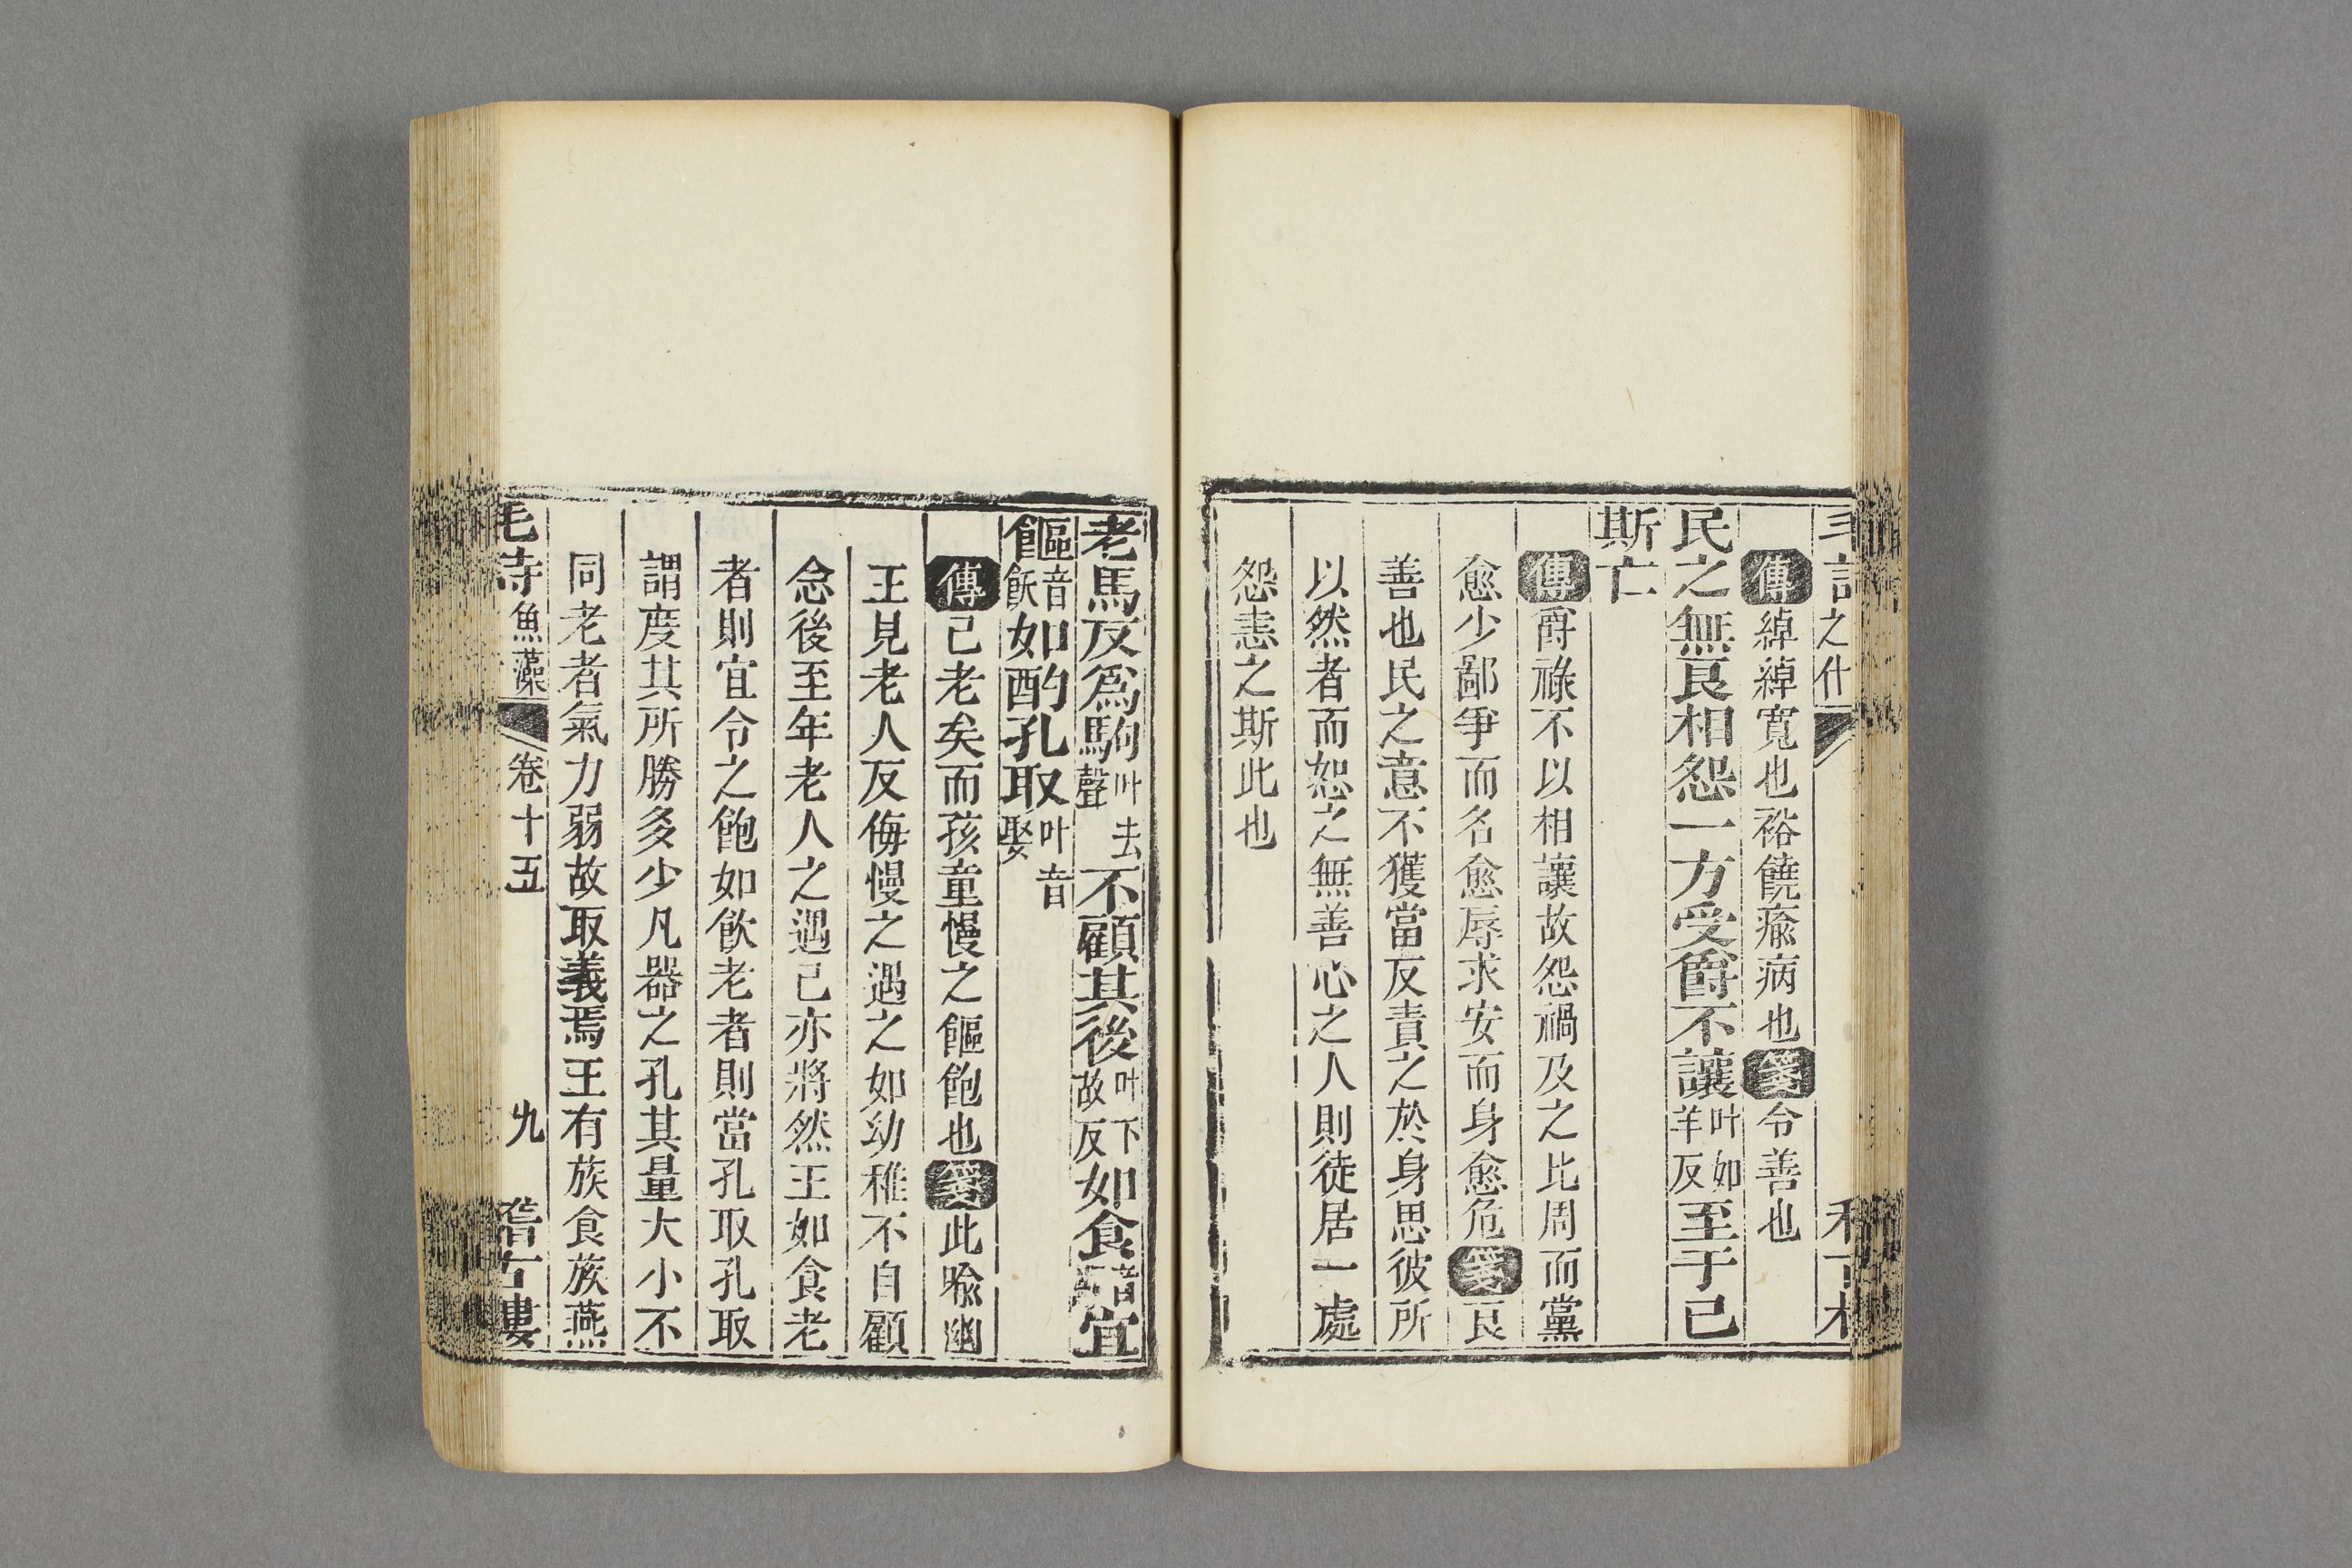 之什
傳綽綽寬也裕饒瘉病也箋令善也
民之無良相怨一方受爵不讓叶如羊反至于已
斯亡
傳爵祿不以相讓故怨禍及之比周而黨
愈少鄙爭而名愈辱求安而身愈危箋良
善也民之意不獲當反責之於身思彼所
以然者而恕之無善心之人則徒居一處
怨恚之斯此也
老馬反爲駒叶去聲不顧其後叶下故反如食音宜
饇音飫如酌孔取叶音娶
傳已老矣而孩童慢之饇飽也箋此喻幽
王見老人反侮慢之遇之如幼稚不自顧
念後至年老人之遇己亦將然王如食老
者則宜令之飽如飲老者則當孔取孔取
謂度其所勝多少凡器之孔其量大小不
同老者氣力弱故取義焉王有族食族燕
魚藻 卷十五 九